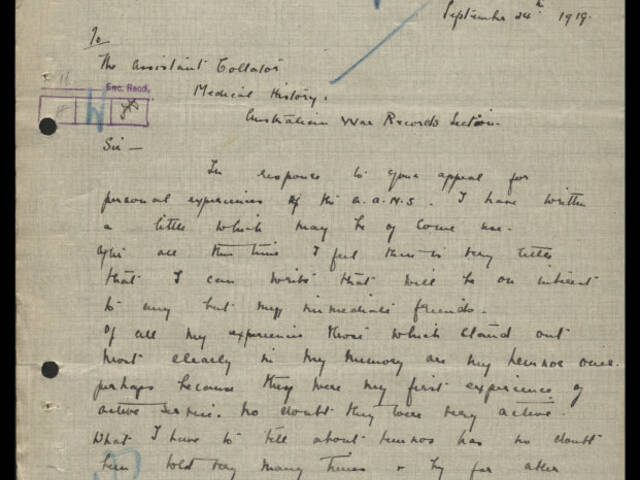 September 24th 1919.
To
The Assistant Collator
Medical History.
Australian War Records Section.
Sec. Recd.
Sir —
In response to your appeal for
personal experiences of the A.A.N.S. I have written
a little which may be of some use.
After all this time I feel there is very little
that I can write that will be on interest
to any but my immediate friends.
Of all my experiences those which stand out
most clearly in my memory are my Lemnos ones.
perhaps because they were my first experience of
active service. No doubt they were very active.
What I have to tell about Lemnos has no doubt
been told very many times & by far abler